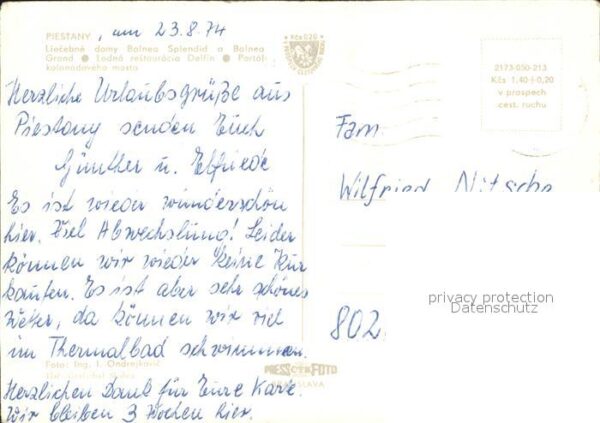 PIEŠŤANY, am 23.8.74
Liečebné domy Balnea Splendid a Balnea
Grand ● Lodná reštaurácia Delfín ● Portál
kolonádového mosta
Herzliche Urlaubsgrüße aus
Piestany senden Euch
Günther u. Elfriede
Es ist wieder wunderschön
hier. Viel Abwechslung! Leider
können wir wieder keine Kur
kaufen. Es ist aber sehr schönes
Wetter, da können wir viel
im Thermalbad schwimmen.
Foto: Ing. I. Ondrejkovič
Herzlichen Dank für Eure Karte.
Wir bleiben 3 Wochen hier.
Kčs 0,20
2173-050-213
Kčs 1,40+0,20
v prospech
cest. ruchu
Fam.
Wilfried Nitsche
802
privacy protection
Datenschutz
PRESSFOTO
BRATISLAVA